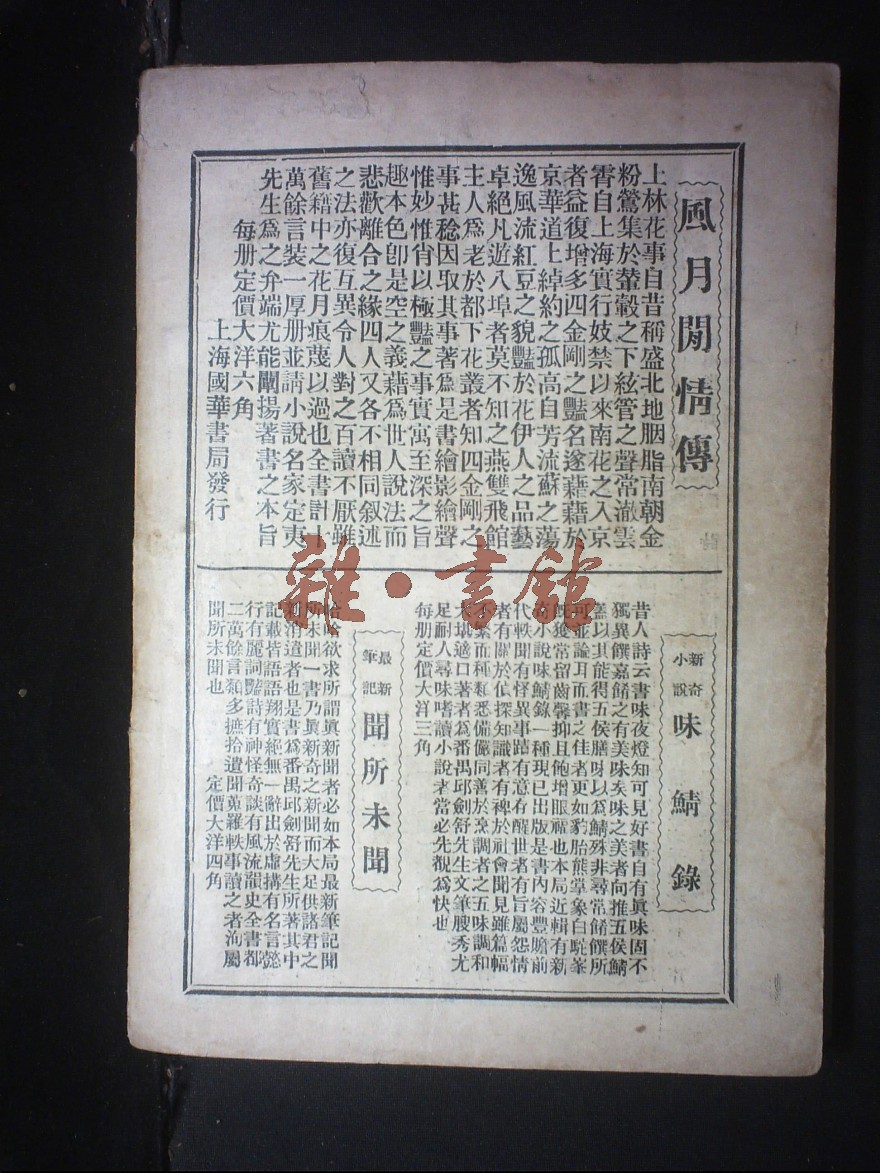 風月閒情傳
上林花事自昔稱盛北地胭脂南朝金
粉鶯集於輦轂之下絃管之聲常澈雲
霄自上海實行妓禁以來南花之入京
者益復增多四金剛之豔名遂藉藉於
京華道上綽約之孤高自芳流蘇之蕩
逸風流紅豆之貌豔於花伊人之品藝
卓絕凡遊八埠者莫不知之燕雙飛館
主人爲老於都下花叢者知四金剛之
事甚稔因取其事著爲是書繪影繪聲
惟妙惟肖以極豔之事實寓至深之旨
趣本色卽是空之義藉爲世人說法而
悲歡離合之緣四人又各不相同叙述
之法亦復互異令人對之百讀不厭雖
舊籍中之花月痕蔑以過也全書計十
萬餘言裝一厚册並請小說名家定夷
先生爲之弁端尤能闡揚著書之本旨
每册定價大洋六角
上海國華書局發行
新奇小說 味鯖錄
昔人詩云書味夜燈知可見好書自有眞味固不
獨異饌嘉餚之有美味矣味之美者向推五侯鯖
蓋以其能得五侯膳呀以爲鯖殊非尋常餚饌所
可並論耳而書之佳者更如豹胎熊掌象白駝峯
旣獲常留齒馨抑且飽增眼福也本局近輯有新
奇小說味鯖錄一種現已出版是書內容豐贍前
代軼聞有怪異事跡有意存醒世者有旨屬怨情
者有關於偵探知識者有裨於社會聞見雖篇幅
不繁而種類悉備儼同善於烹調者之五味調和
大堪適口著者爲番禺邱劍舒先生文筆腴秀尤
足耐人尋味嗜讀小說者當必先覩爲快也
每册定價大洋三角
最新筆記 聞所未聞
哈哈欲求所謂眞新聞者必如本局最新筆記聞
所未聞一書乃眞新奇之新聞而大足供諸君之
新消遣者也是書爲番禺邱劍舒先生所著其中
記載皆語語翔實絕無一辭出於虛搆有名言懿
行有麗詞豔詩有神怪奇談有風流韻史全書都
二萬餘言類多摭拾遺聞蒐羅軼事讀之者洵屬
聞所未聞也 定價大洋四角
雜·書館